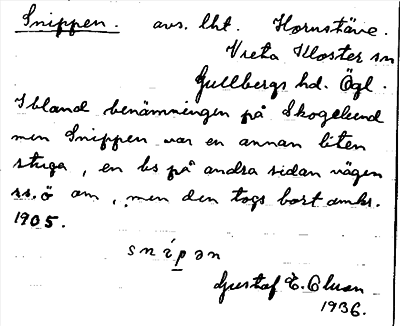 Snippen. avs. lht. Hornstäve.
Vreta Kloster sn
Gullbergs hd. Ögl.
Ibland benämningen på Skogslund
men Snippen var en annan liten
stuga, en bs på andra sidan vägen
ss. ö om, men den togs bort omkr.
1905.
snípən
Gustaf E. Olsson
1936.